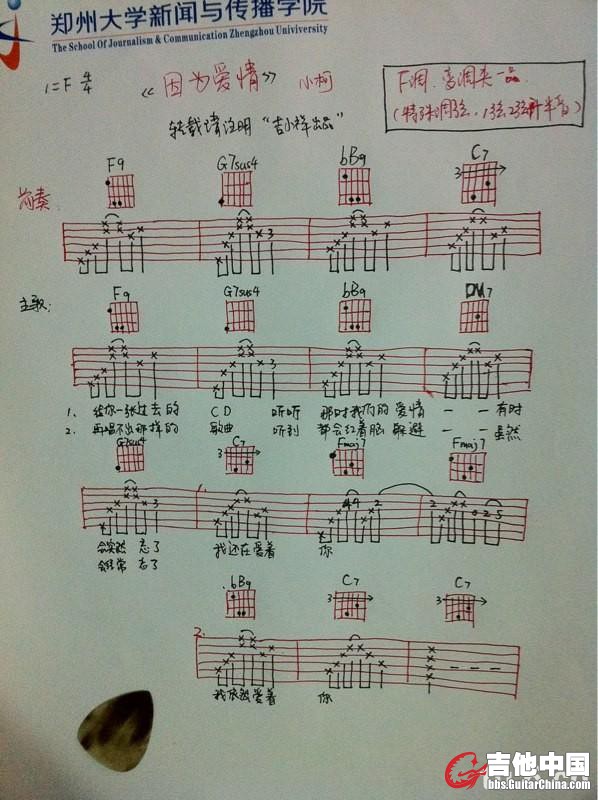 郑州大学新闻与传播学院
The School Of Journalism & Communication Zhengzhou Univiversity
1=F 4/4 《因为爱情》 小柯
F调.套调夹一品.
(特殊调弦,1弦2弦升半音)
转载请注明"吉小祥出品"
F9 G7sus4 bB9 C7
前奏:
3
3
主歌:
F9 G7sus4 bB9 DM7
3
1. 给你一张过去的 CD 听听 那时我们的爱情 — — 有时
2. 再唱不出那样的 歌曲 听到 都会红着脸 躲避 — — 虽然
G7sus4 C7 Fmaj7 Fmaj7
3
3 4 4 2 2 0 2 5
会突然 忘了 我还在爱着 你
会经常 忘了
bB9 C7 C7
3 3
2.
我依然爱着 你
吉他中国
bbs.GuitarChina.com